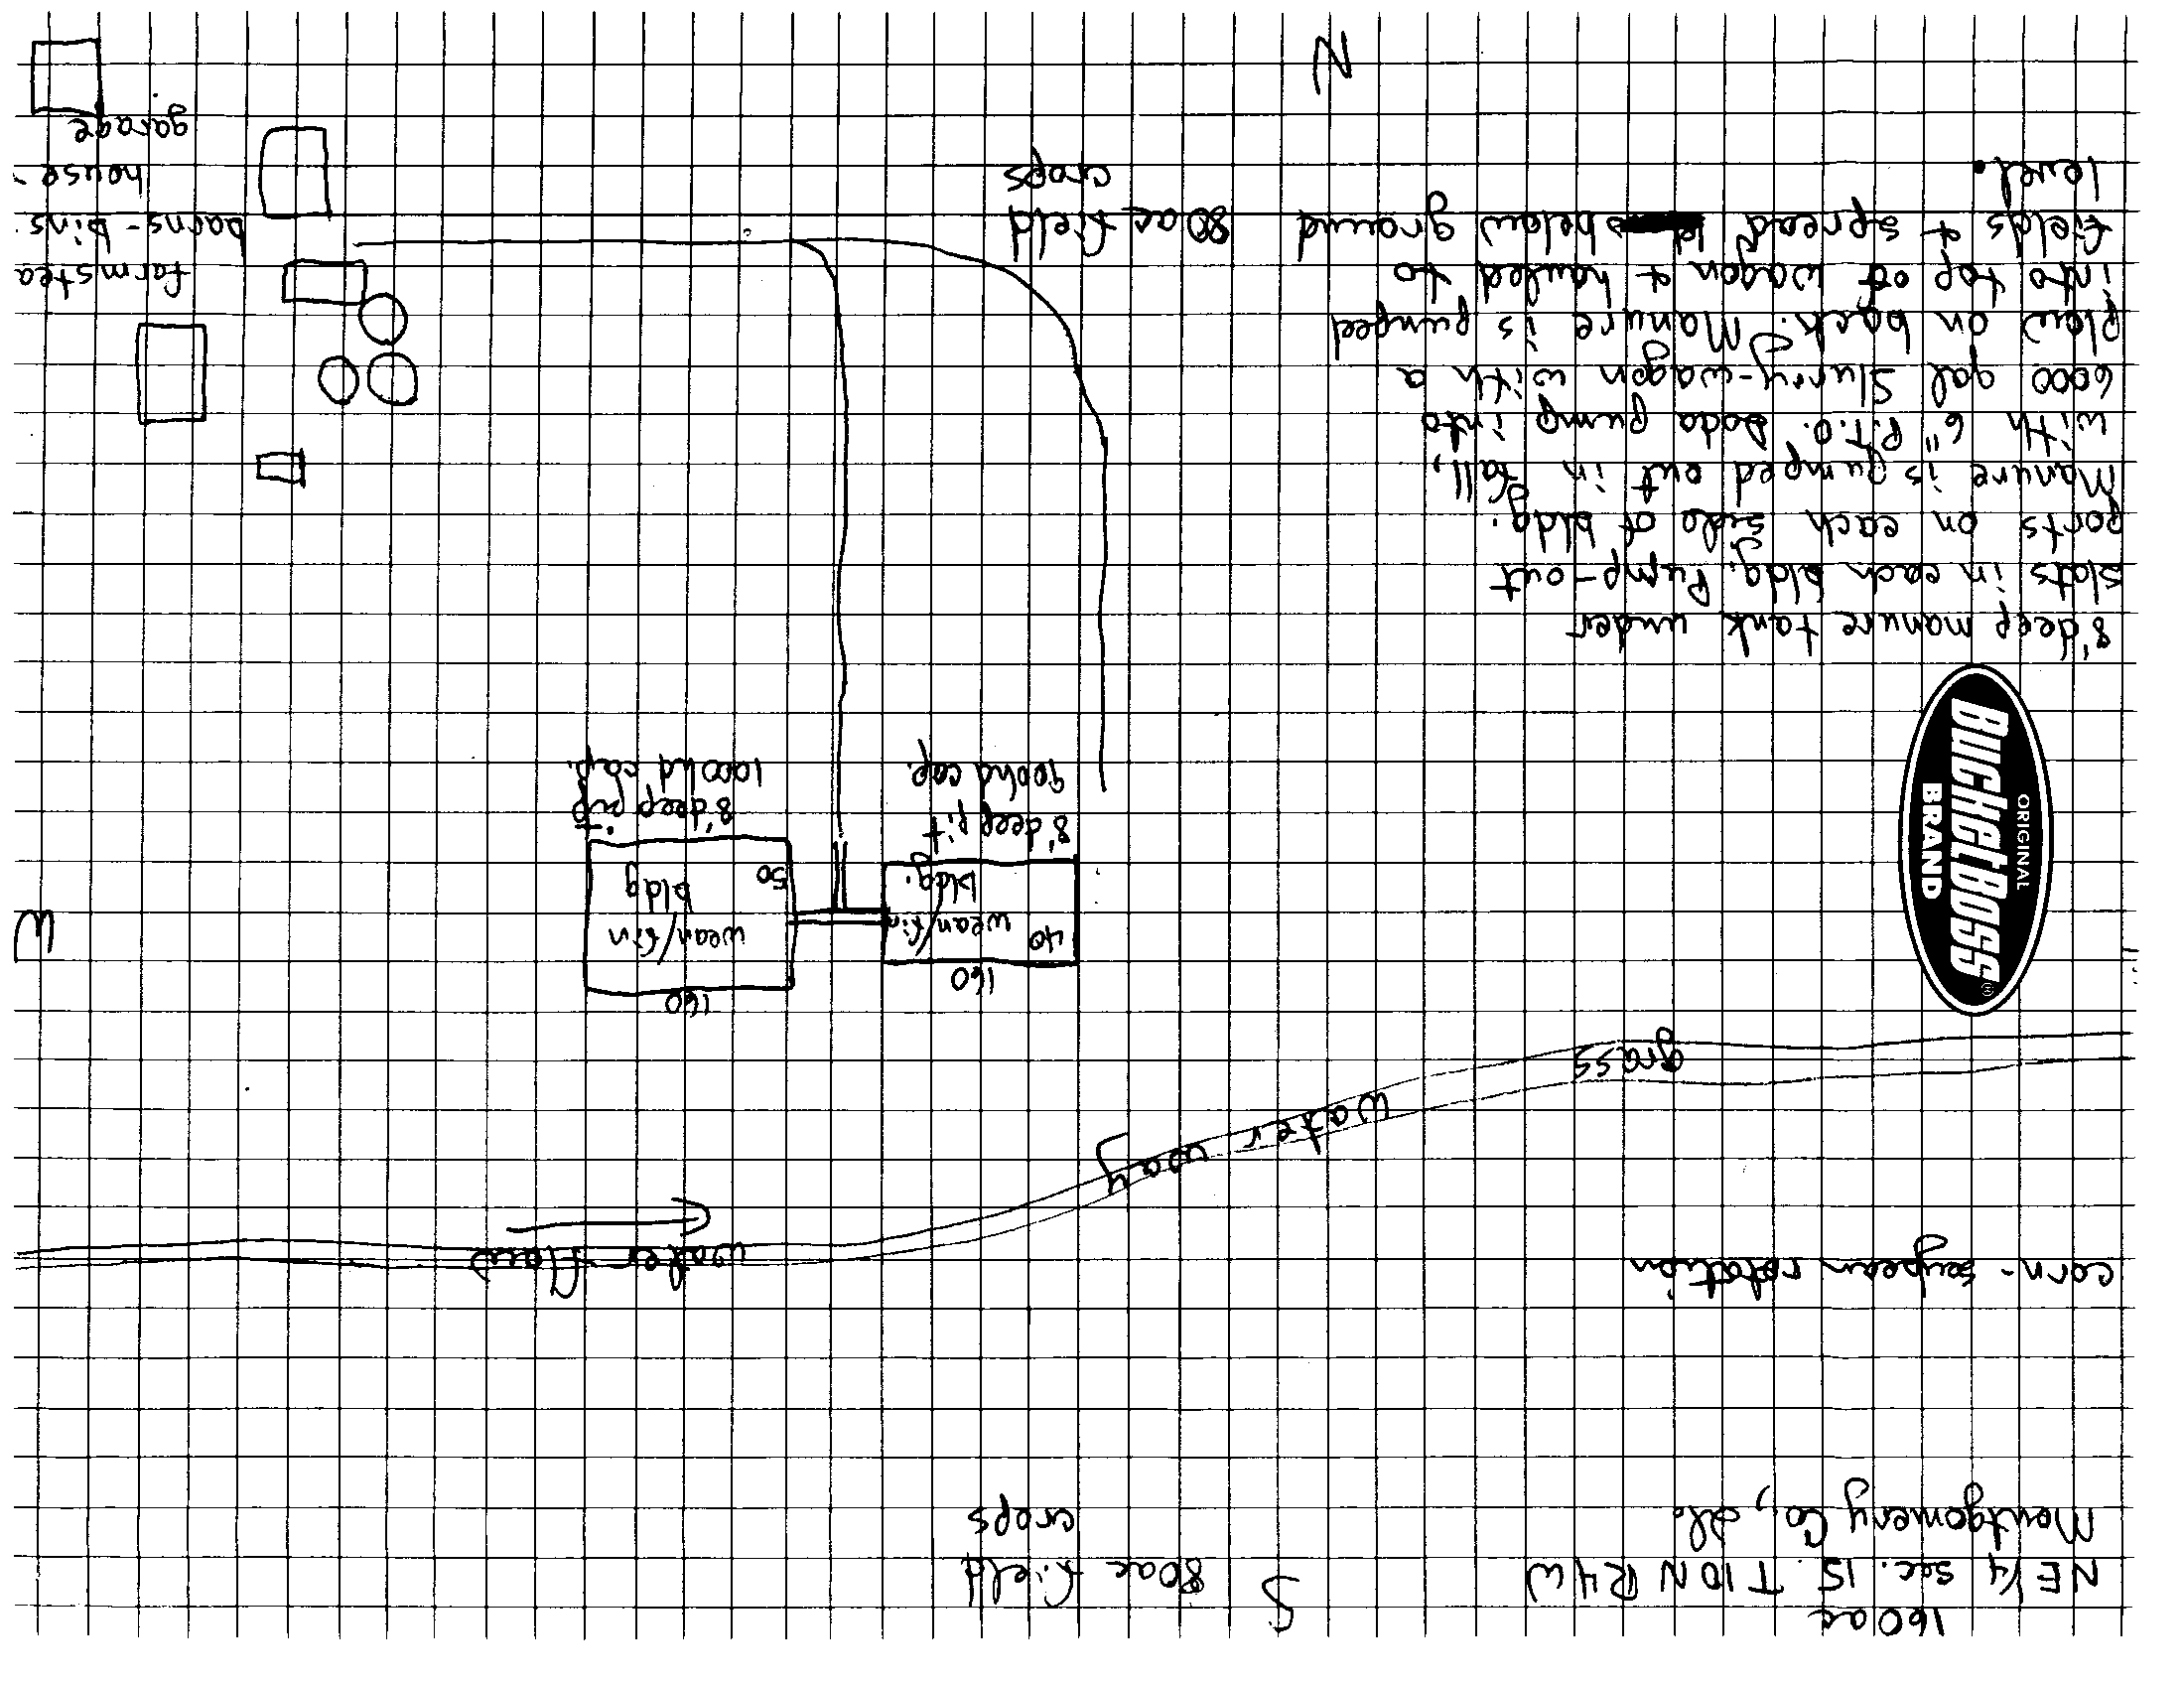 160 ac
NE 1/4 sec. 15 T10N R4W
Montgomery Co, Ill.
S
80 ac field
crops
corn-soybean rotation
water flow
grass water way
160
40 wean/fin
bldg.
8' deep pit
900 hd cap.
160
wean/fin
50 bldg
8' deep pit
1000 hd cap.
W
ORIGINAL
BUCKETBOSS®
BRAND
8' deep manure tank under
slats in each bldg. Pump-out
ports on each side of bldg.
Manure is pumped out in fall,
with 6" P.T.O. Doda pump into
6000 gal slurry-wagon with a
plow on back. Manure is pumped
into top of wagon & hauled to
fields & spread below ground
level.
80 ac field
crops
farmstea
barns-bins
house-
garage
N